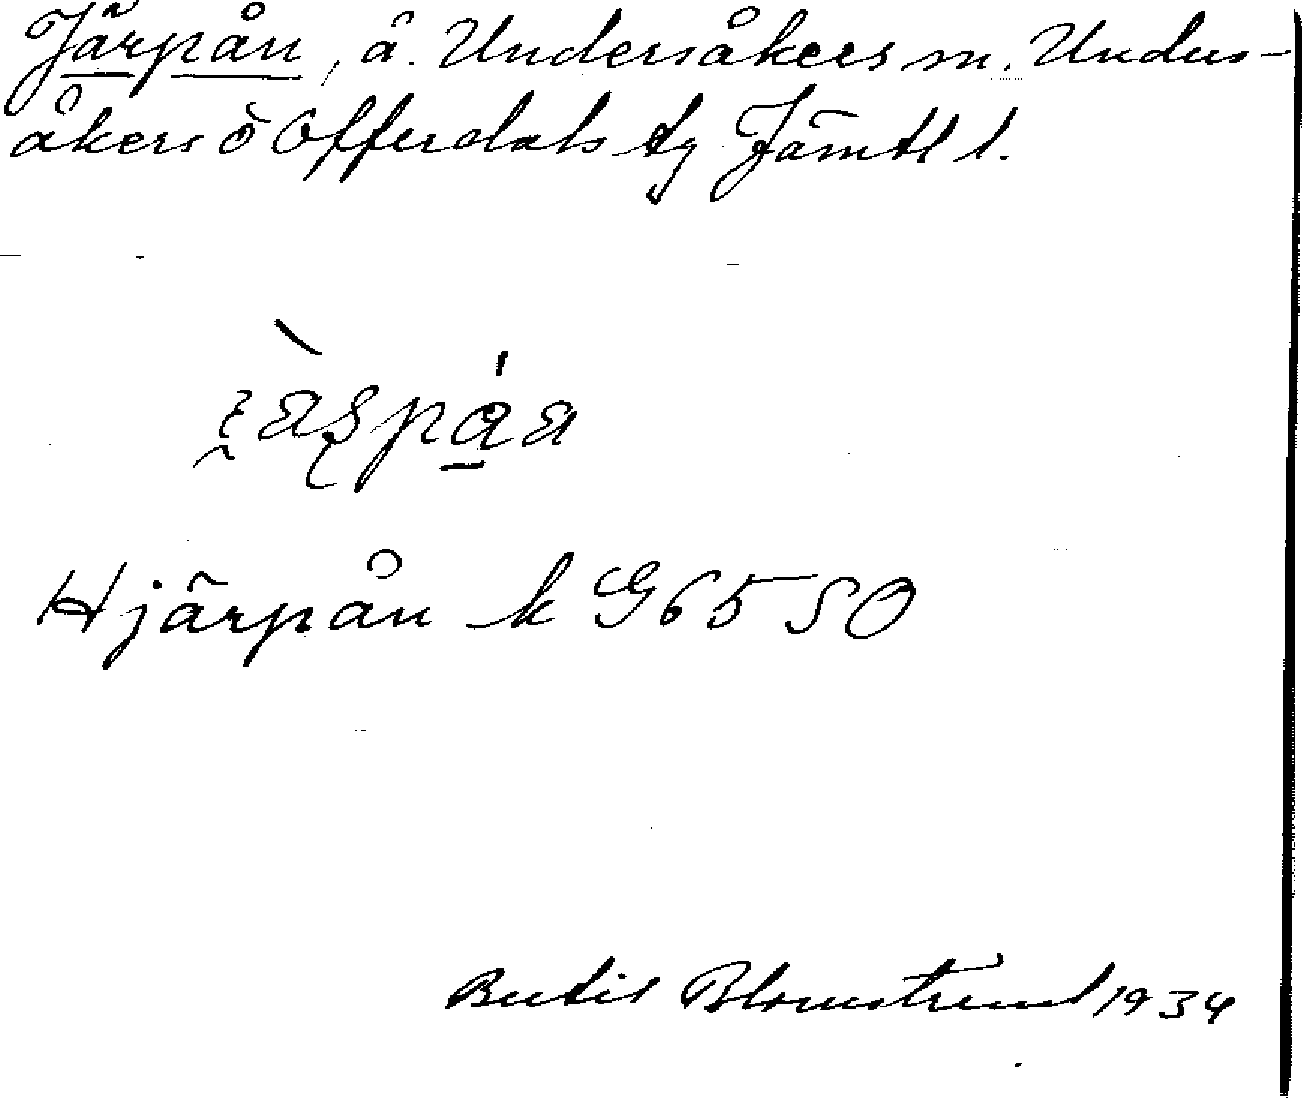 Järpån, å. Undersåkers sn. Unders-
åkers o Offerdals tg Jämtl l.
Hjärpån k G 65 50
Bertil Blomstrand 1934